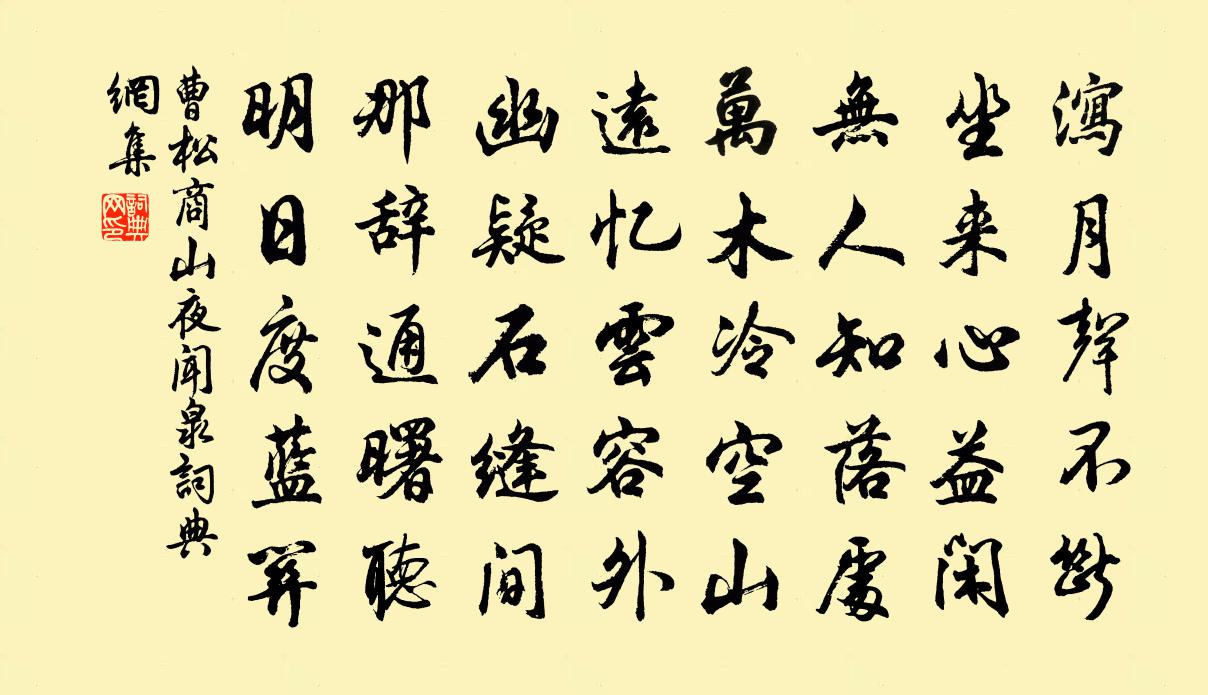 瀉月聲不斷
坐来心益闲
無人知落處
萬木冷空山
遠忆雲容外
幽疑石縫间
那辞通曙聽
明日度藍關
曹松商山夜闻泉詞典
網集
詞典
网印